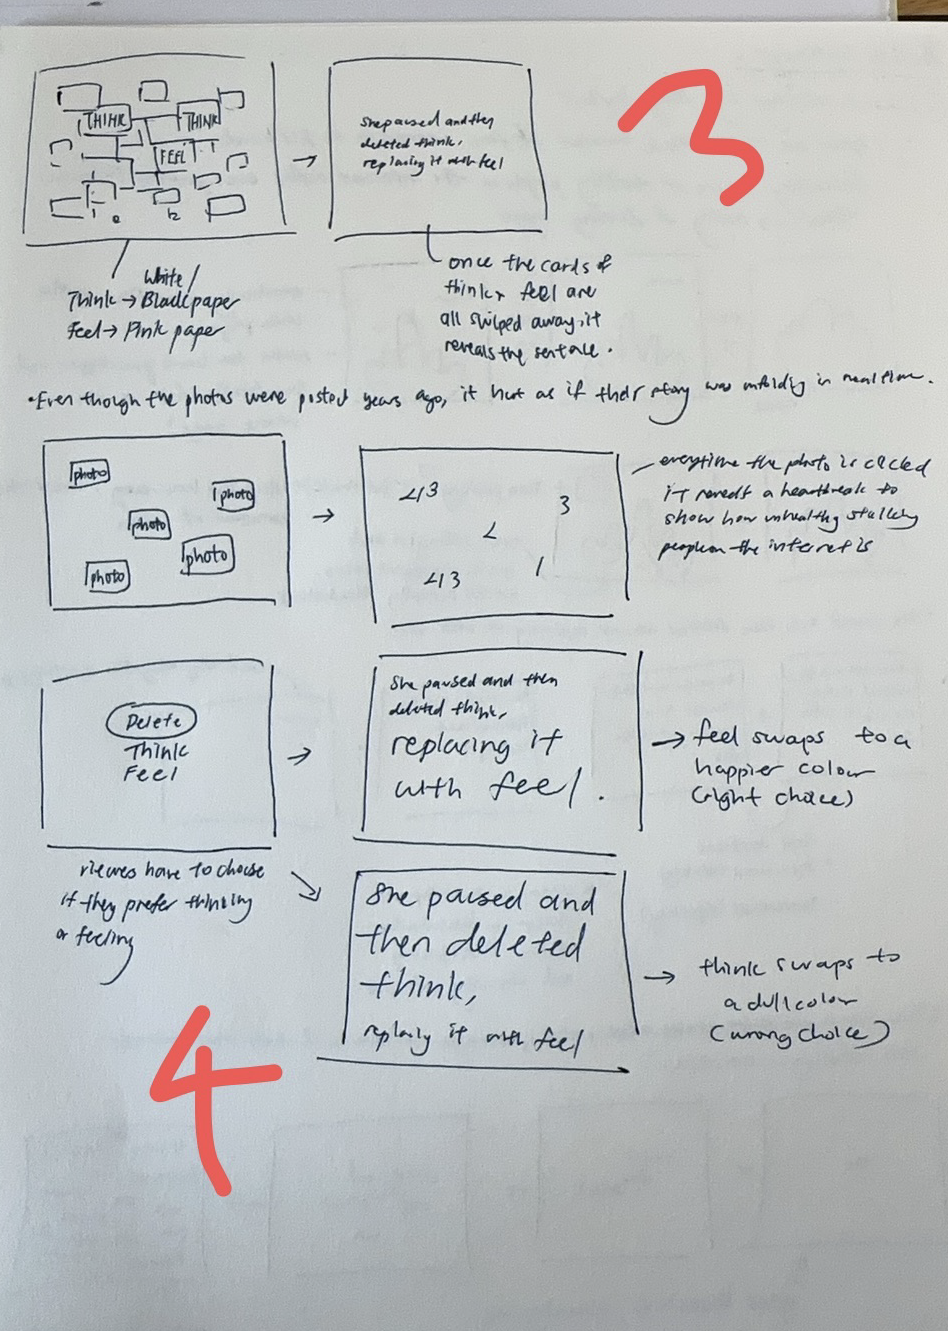 3
THINK
THINK
FEEL
She paused and then
deleted think,
replacing it with feel
White/
Think → Black paper
Feel → Pink paper
once the cards of
think + feel are
all swiped away, it
reveals the sentence.
•Even though the photos were posted years ago, it hurt as if their story was unfolding in real time.
photo
photo
photo
photo
photo
<13
3
<
<13
1
everytime the photo is clicked
it reveals a heartbreak to
show how unhealthy stalking
people on the internet is
Delete
Think
Feel
She paused and then
deleted think,
replacing it
with feel.
→ feel swaps to a
happier colour
(right choice)
viewers have to choose
if they prefer thinking
or feeling
She paused and
then deleted
think,
replacing it with feel
→ think swaps to
a dull colour
(wrong choice)
4